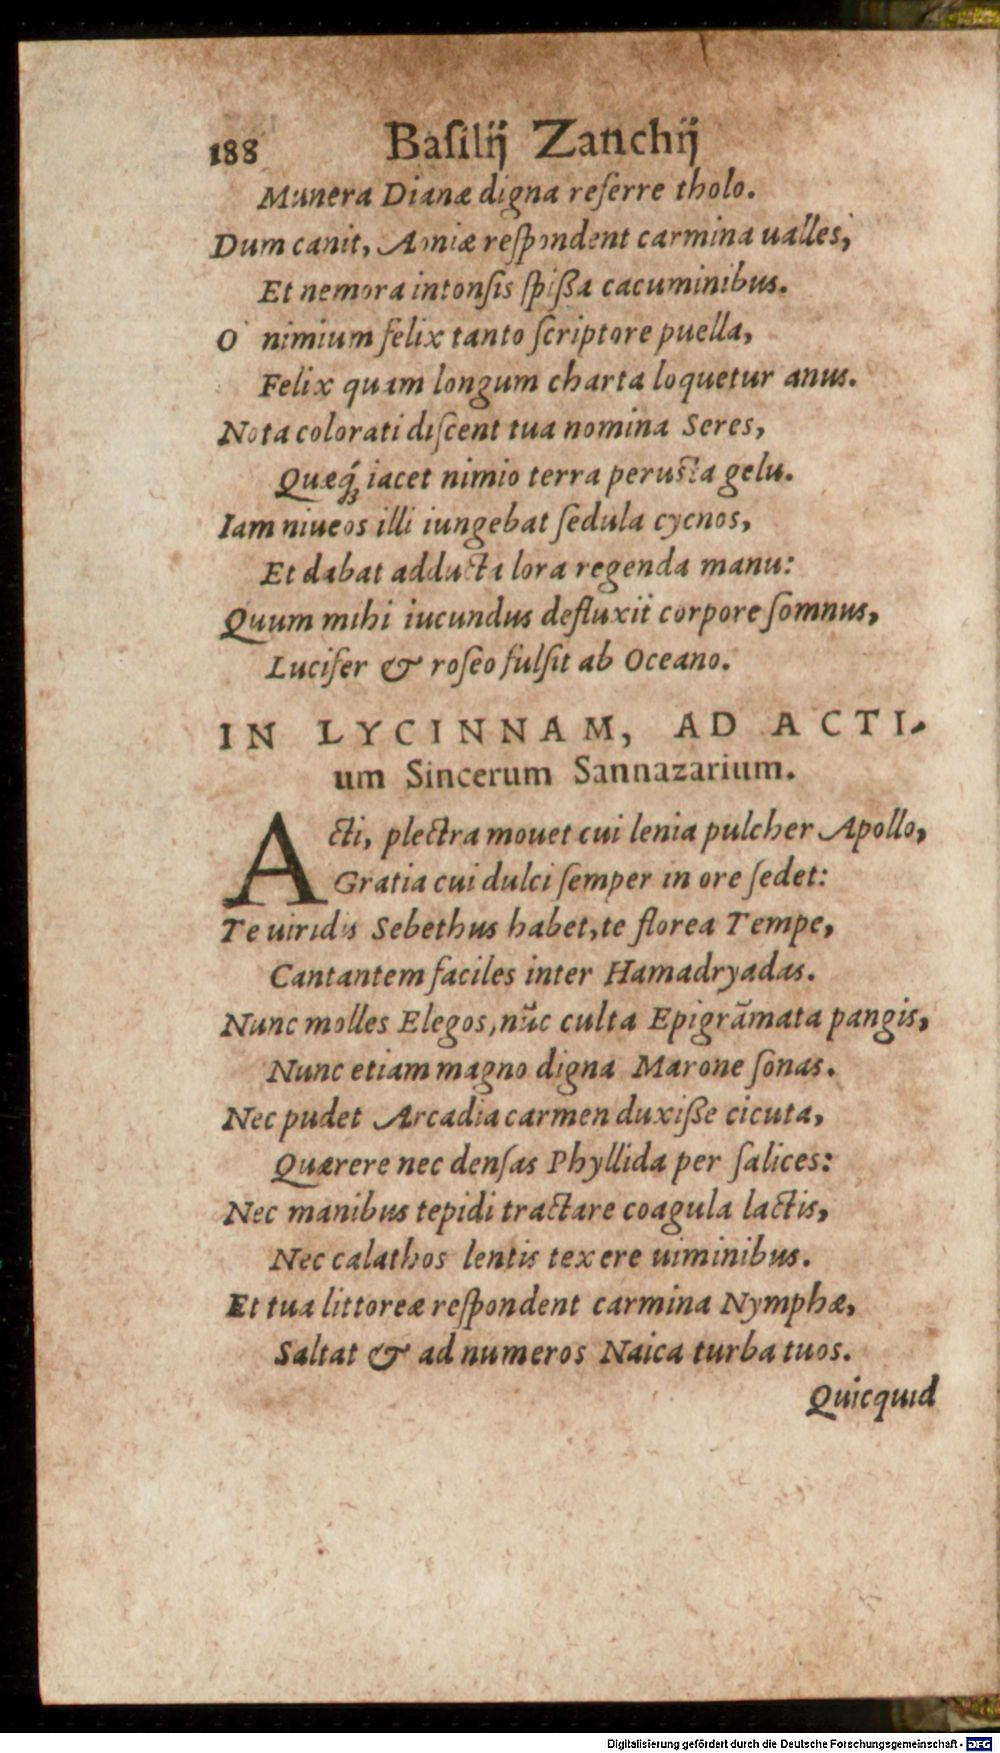 188 Baſilij Zanchij
Munera Dianæ digna referre tholo.
Dum canit, Aoniæ reſpondent carmina ualles,
Et nemora intonſis ſpiſſa cacuminibus.
O nimium felix tanto ſcriptore puella,
Felix quam longum charta loquetur anus.
Nota colorati diſcent tua nomina Seres,
Quæq́ꝫ iacet nimio terra peruſta gelu.
Iam niueos illi iungebat ſedula cycnos,
Et dabat adducta lora regenda manu:
Quum mihi iucundus defluxit corpore ſomnus,
Lucifer & roſeo fulſit ab Oceano.
IN LYCINNAM, AD ACTI-
um Sincerum Sannazarium.
Acti, plectra mouet cui lenia pulcher Apollo,
Gratia cui dulci ſemper in ore ſedet:
Te uiridis Sebethus habet, te florea Tempe,
Cantantem faciles inter Hamadryadas.
Nunc molles Elegos, nũc culta Epigrãmata pangis,
Nunc etiam magno digna Marone ſonas.
Nec pudet Arcadia carmen duxiſſe cicuta,
Quærere nec denſas Phyllida per ſalices:
Nec manibus tepidi tractare coagula lactis,
Nec calathos lentis texere uiminibus.
Et tua littoreæ reſpondent carmina Nymphæ,
Saltat & ad numeros Naica turba tuos.
Quicquid
Digitalisierung gefördert durch die Deutsche Forschungsgemeinschaft - DFG